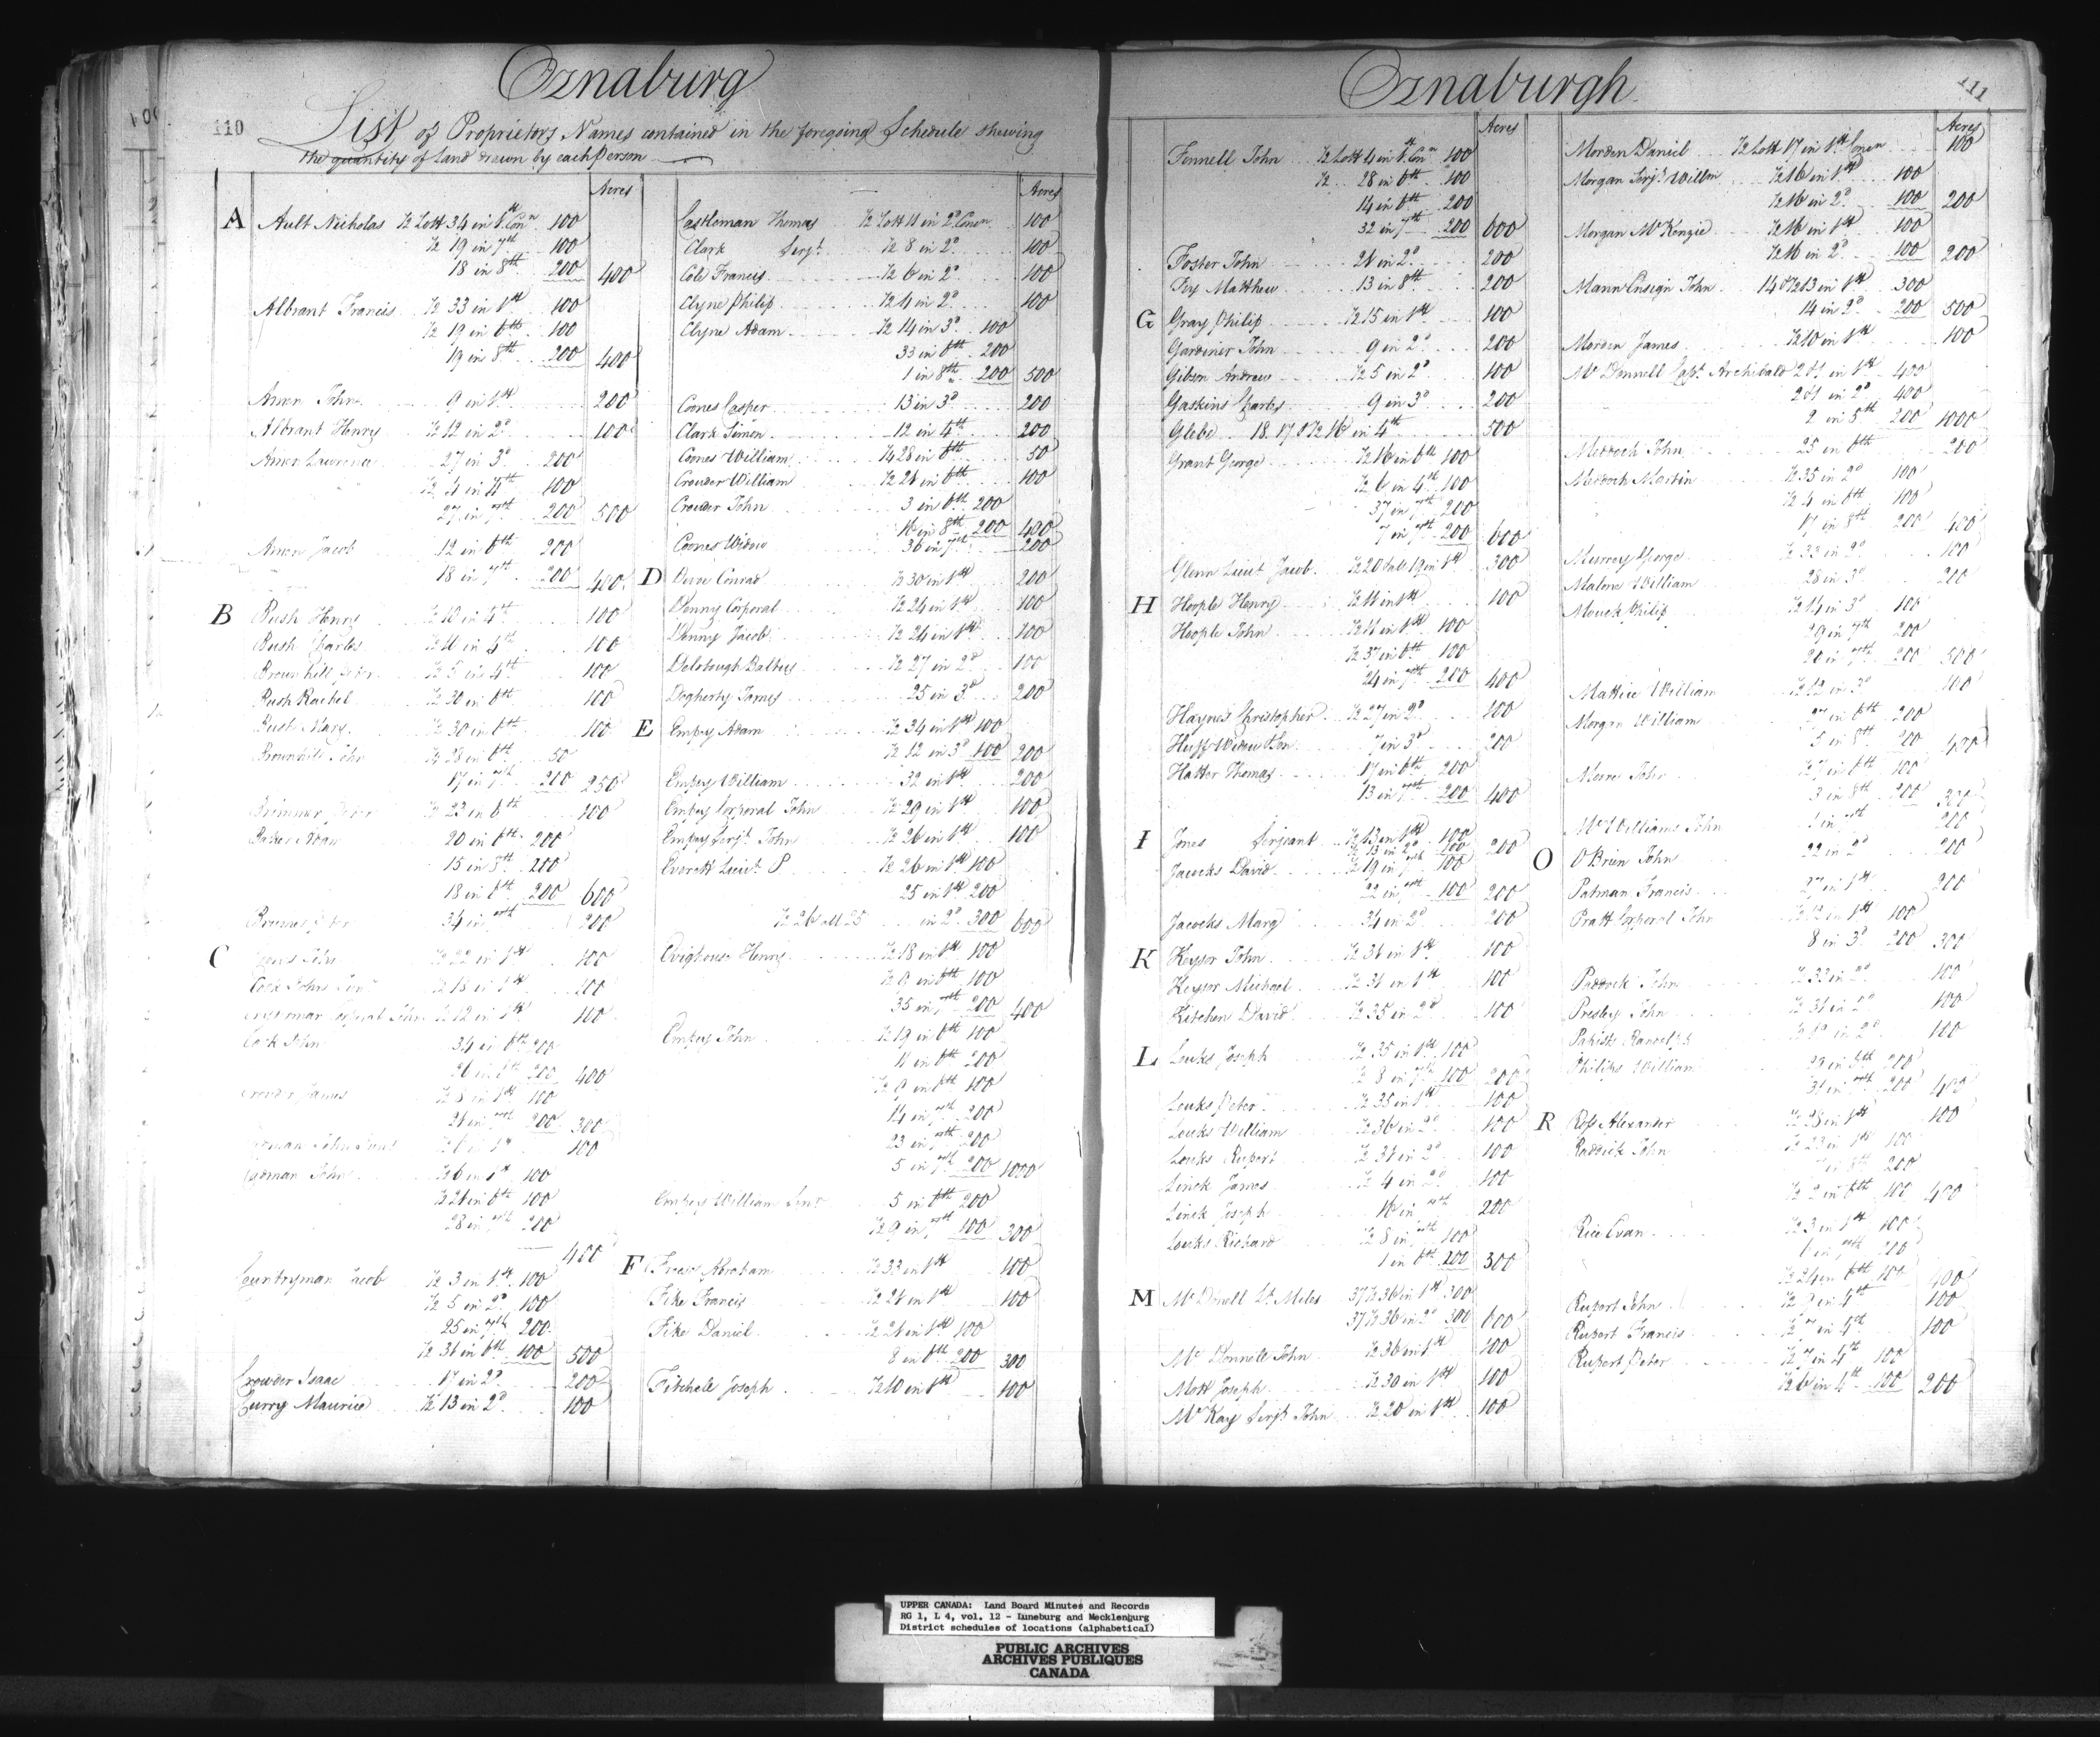 110
Oznaburg
List of Proprietors Names contained in the foregoing Schedule shewing
the quantity of Land drawn by each Person
Acres
A
Ault Nicholas ½ Lott 34 in 1st Conn 100
½ 19 in 7th 100
18 in 8th 200 400
Albrant Francis ½ 33 in 1st 100
½ 19 in 6th 100
19 in 8th 200 400
Amon John 9 in 1st 200
Albrant Henry ½ 12 in 2d 100
Amon Lawrence 27 in 3d 200
100
27 in 7th 200 500
Amon Jacob 12 in 6th 200
18 in 7th 200 400
B
Bush Henry ½ 10 in 4th 100
Bush Charles 100
Brownhill ½ 5 in 4th 100
Bush Rachel ½ 30 in 6th 100
Bush Mary ½ 30 in 6th 100
Brownhill John ¼ 28 in 6th 50
17 in 7th 200 250
½ 23 in 6th 100
Baker Adam 20 in 6th 200
15 in 8th 200
18 in 6th 200 600
34 in 7th 200
C
½ 22 in 1st 100
½ 18 in 1st 100
Corporal John ½ 12 in 1st 100
Cook John 34 in 6th 200
200 400
James ½ 8 in 1st 100
200 300
100
John ½ 6 in 1st 100
½ 21 in 6th 100
28 in 7th 200
400
Countryman Jacob ½ 3 in 1st 100
½ 5 in 2d 100
25 in 7th 200
½ 31 in 6th 100 500
Crowder Isaac 17 in 2d 200
Curry Maurice ½ 13 in 2d 100
Acres
Castleman Thomas ½ Lott 11 in 2d Conn 100
Clark Serjt ½ 8 in 2d 100
Cole Francis ½ 6 in 2d 100
Clyne Philip ½ 4 in 2d 100
Clyne Adam ½ 14 in 3d 100
33 in 6th 200
1 in 8th 200 500
Coones Casper 13 in 3d 200
Clark Simon 12 in 4th 200
Coones William ¼ 28 in 6th 50
Crowder William ½ 21 in 6th 100
Crowder John 3 in 6th 200
16 in 8th 200 400
Coones Widow 36 in 7th 200
D
Conrad 30 in 1st 200
Denny Corporal ½ 24 in 1st 100
Denny Jacob ½ 24 in 1st 100
Balteus ½ 27 in 2d 100
Dogherty James 25 in 3d 200
E
Empey Adam ½ 34 in 1st 100
½ 12 in 3d 100 200
Empey William 32 in 1st 200
Empey Corporal John ½ 29 in 1st 100
Empey Serjt John ½ 26 in 1st 100
Everett Lieut P ½ 26 in 1st 100
25 in 1st 200
½ 26 all 25 in 2d 300 600
Henry ½ 18 in 1st 100
½ 9 in 6th 100
35 in 7th 200 400
Empey John ½ 19 in 6th 100
11 in 6th 200
½ 9 in 6th 100
14 in 7th 200
23 in 7th 200
5 in 7th 200 1000
Empey William Senr 5 in 6th 200
½ 9 in 7th 100 300
F
Abraham ½ 33 in 1st 100
Fike Francis ½ 21 in 1st 100
Fike Daniel ½ 21 in 1st 100
8 in 6th 200 300
Fitchell Joseph ½ 10 in 1st 100
Oznaburgh
111
Acres
Fennell John ½ Lott 4 in 1st Conn 100
½ 28 in 6th 100
14 in 6th 200
32 in 7th 200 600
Foster John 21 in 2d 200
Matthew 13 in 8th 200
G
Gray Philip ½ 15 in 1st 100
Gardiner John 9 in 2d 200
Gibson Andrew ½ 5 in 2d 100
Gaskins Charles 9 in 3d 200
Glebe 18. 17 & ½ 16 in 4th 500
Grant George ½ 16 in 6th 100
½ 6 in 4th 100
37 in 7th 200
7 in 7th 200 600
Glenn Lieut Jacob ½ 20 & all 19 in 1st 300
H
Hoople Henry ½ 11 in 1st 100
Hoople John ½ 11 in 1st 100
½ 37 in 6th 100
24 in 7th 200 400
Haynes Christopher ½ 27 in 2d 100
Huff Widow & Son 7 in 3d 200
Hatter Thomas 17 in 6th 200
13 in 7th 200 400
I
Jones Serjeant ½ 13 in 1st 100
½ 13 in 2d 100 200
Jacocks David ½ 19 in 7th 100
22 in 7th 100 200
Jacocks Mary 34 in 2d 200
K
Keysor John ½ 31 in 1st 100
Keysor Michael ½ 31 in 1st 100
Kitchen David ½ 35 in 2d 100
L
Louks Joseph ½ 35 in 1st 100
½ 8 in 7th 100 200
Louks Peter ½ 35 in 1st 100
Louks William ½ 36 in 2d 100
Louks Rupert ½ 31 in 2d 100
Linck James ½ 4 in 2d 100
Linck Joseph 10 in 7th 200
Louks Richard ½ 8 in 7th 100
1 in 6th 200 300
M
Mc Donell Lt Miles 37 ½ 36 in 1st 300
37 ½ 36 in 2d 300 600
Mc Donnell John ½ 36 in 1st 100
Mott Joseph ½ 30 in 1st 100
Mc Kay Serjt John ½ 20 in 1st 100
Acres
Morden Daniel ½ Lott 17 in 1st Conn 100
Morgan Serjt Willm ½ 16 in 1st 100
½ 16 in 2d 100 200
Morgan McKenzie ½ 16 in 1st 100
½ 16 in 2d 100 200
Mann Ensign John 14 & ½ 13 in 1st 300
14 in 2d 200 500
Morden James ½ 10 in 1st 100
Mc Donnell Capt Archibald 2 & 1 in 1st 400
2 & 1 in 2d 400
2 in 8th 200 1000
Murdoch John 25 in 6th 200
Murdoch Martin ½ 35 in 2d 100
½ 4 in 6th 100
17 in 8th 200 400
Murray George ½ 33 in 2d 100
Malone William 28 in 3d 200
Mouck Philip ½ 14 in 3d 100
29 in 7th 200
20 in 7th 200 500
Mattice William ½ 12 in 3d 100
Morgan William 27 in 6th 200
5 in 8th 200 400
John 100
3 in 8th 200 300
McWilliams John 1 in 7th 200
O
O'Brien John 22 in 2d 200
Patman Francis 27 in 1st 200
Pratt Corporal John ½ 12 in 1st 100
8 in 3d 200 300
John ½ 33 in 2d 100
Presley John 100
Randolph 100
Philips William 200
200 400
R
Ross Alexander ½ 28 in 1st 100
Raddick John ½ 23 in 1st 100
200
½ 2 in 6th 100 400
Rice Evan ½ 3 in 1st 100
200
½ 24 in 6th 100 400
Rupert John 100
Rupert Francis ½ 7 in 4th 100
Rupert Peter ½ 7 in 4th 100
½ 6 in 4th 100 200
UPPER CANADA: Land Board Minutes and Records
RG 1, L 4, vol. 12 - Luneburg and Mecklenburg
District schedules of locations (alphabetical)
PUBLIC ARCHIVES
ARCHIVES PUBLIQUES
CANADA